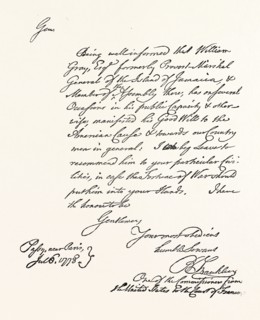 Gent
Being well informed that William
Gray, Esqr formerly Provost-Marshal
General of the Island of Jamaica, &
Member of Assembly there, has on several
Occasions in his public Capacity, & other
wise, manifested his Good Will to the
American Cause & towards our Country
men in general; I beg leave to
recommend him to your particular Civi
lities, in case the Fortune of War should
put him into your Hands. I have
the honour to be
Gentlemen
Your most obedient
humble Servant
B Franklin
Passy, near Paris,
1778
One of the Commissioners from
the United States to the Court of France